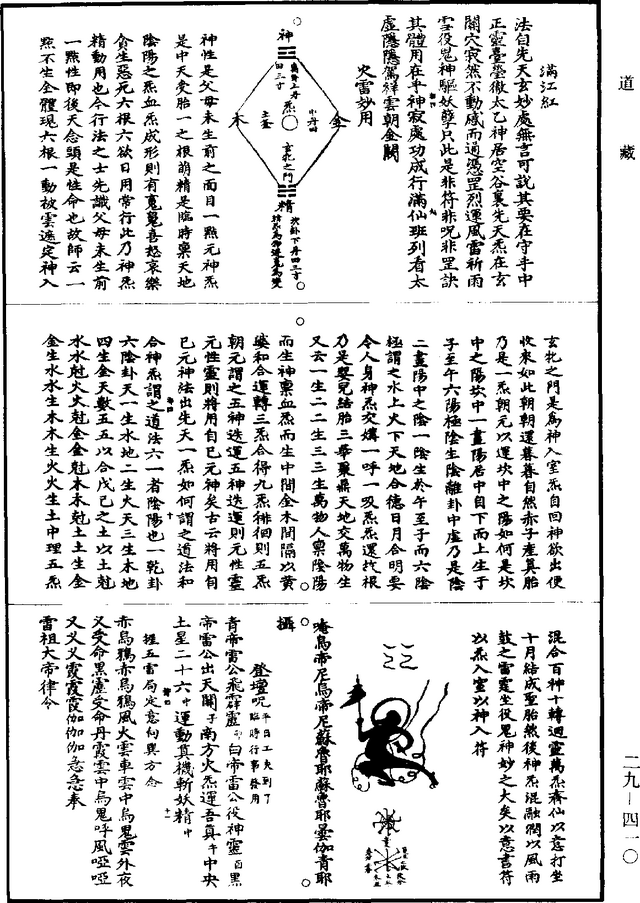 道藏
滿江紅
法自先天玄妙處無言可說其要在守乎中
正靈臺瑩徹太乙神居空谷裏先天炁在玄
關穴寂然不動感而通憑罡烈運風雷祈雨
雪役鬼神驅妖孽只此是非符非呪非罡訣
其體用在乎神寂處功成行滿仙班列看太
虛隱隱駕祥雲朝金闕
火雷妙用
神
離上丹
田三寸
炁
玄牝之門
木
金
精
坎卦下丹田三寸
神性是父母未生前之面目一點元神炁
是中天受胎一之根萌精是臨時稟天地
陰陽之炁血炁成形則有寬鬼喜怒哀樂
貪生惡死六根六欲日用常行此乃神炁
精動用也今行法之士先識父母未生前
一點性即後天念頭是性命也故師云一
點不生全體現六根一動被雲遮定神入
玄牝之門是爲神入室炁自回神欲出便
收來如此朝朝還暮暮自然赤子產真胎
乃是一炁朝元以運坎中之陽如何是坎
中之陽坎中一畫陽居中自下而上生于
子至午六陽極陰生陰離卦中虛乃是陰
二畫陽中之陰一陰生於午至子而六陰
極謂之水上火下天地合德日月合明要
令人身神炁交媾一呼一吸炁炁還找根
乃是嬰兒結胎三華聚鼎天地交萬物生
又云一生二二生三三生萬物人稟陰陽
而生神稟血炁而生中間金木間隔以黃
婆和合運轉三炁合得九炁徘徊則五炁
朝元謂之五神迭運五神迭運則元性靈
元性靈則將用自己元神矣古云將用自
己元神法出先天一炁如何謂之道法和
合神炁謂之道法六一者陰陽也一乾卦
六陰卦天一生水地二生火天三生木地
四生金天數五五以合戊己之土以土尅
水水尅火火尅金金尅木木尅土土生金
金生水水生木木生火火生土中理五炁
混合百神十轉迴靈萬炁齊仙以意打坐
十月結成聖胎然後神炁混融潤以風雨
鼓之雷霆坐役鬼神妙之大矣以意書符
以炁入室以神入符
唵烏帝尼烏帝尼蘇魯耶蘇魯耶曇伽青耶
攝
登壇呪平日工夫到了臨時行事發用
青帝雷公飛霹靂白帝雷公役神靈酉黑
帝雷公出天關子南方火炁運吾真午中央
土星二十六中運動真機斬妖精中
握五雷局定意向巽方念
赤烏鴉赤烏鴉風火雲車雲中烏鬼雲外夜
叉受命黑虛受命丹霞雲中烏鬼呼風啞啞
又又又霞霞霞伽伽伽急急奉
雷祖大帝律令
二九—四一〇